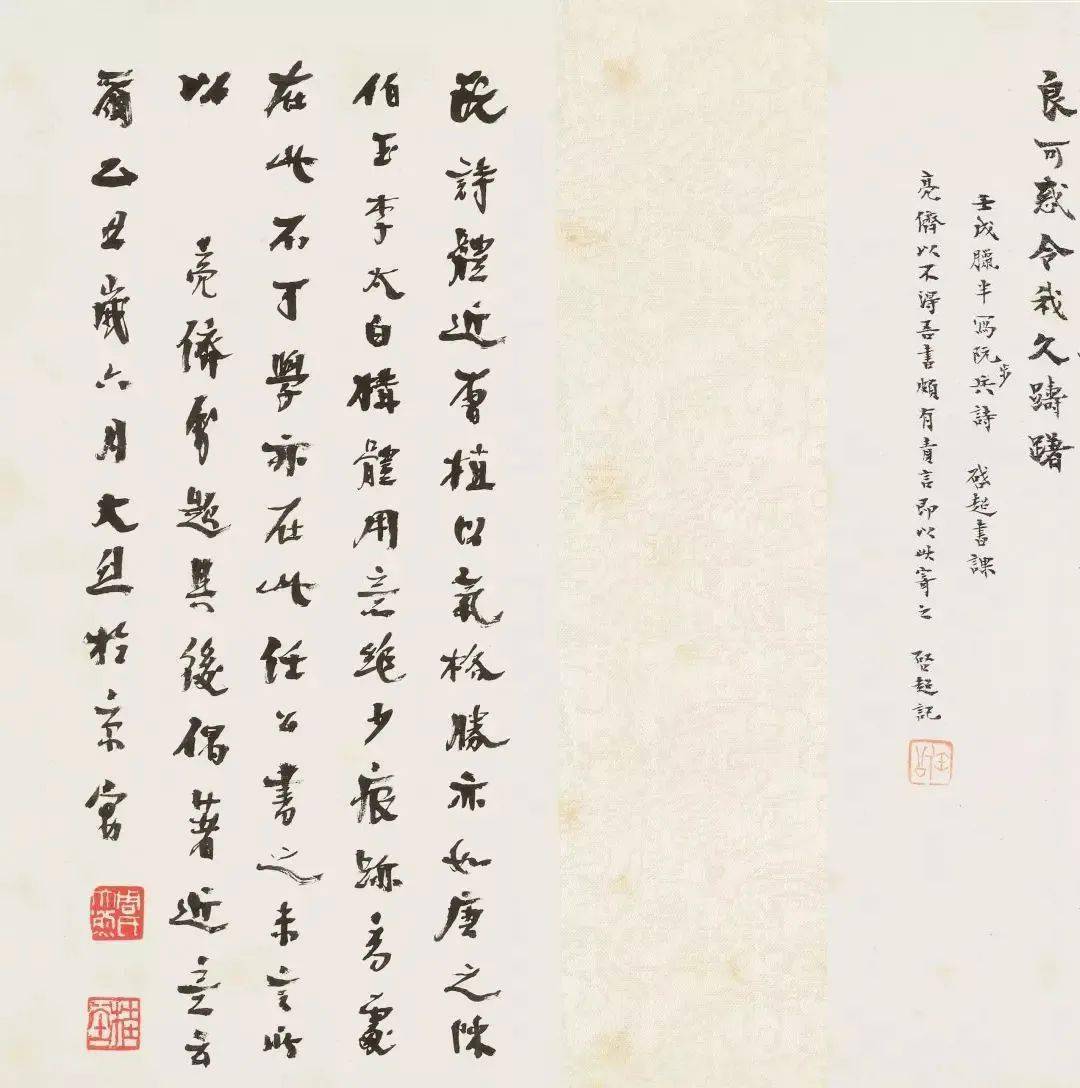 良可惑令我久躊躇
壬戌臘半寫阮步兵詩 啓超書課
亮儕以不得吾書頗有責言即以此寄之 啓超記
任公
阮詩體近曹植以氣格勝亦如唐之陳
伯玉李太白構體用意絕少痕跡高處
在此不可學亦在此任公書之未言所
以 亮儕屬題其後偶著近意云
爾乙丑歲六月大烈於京寓